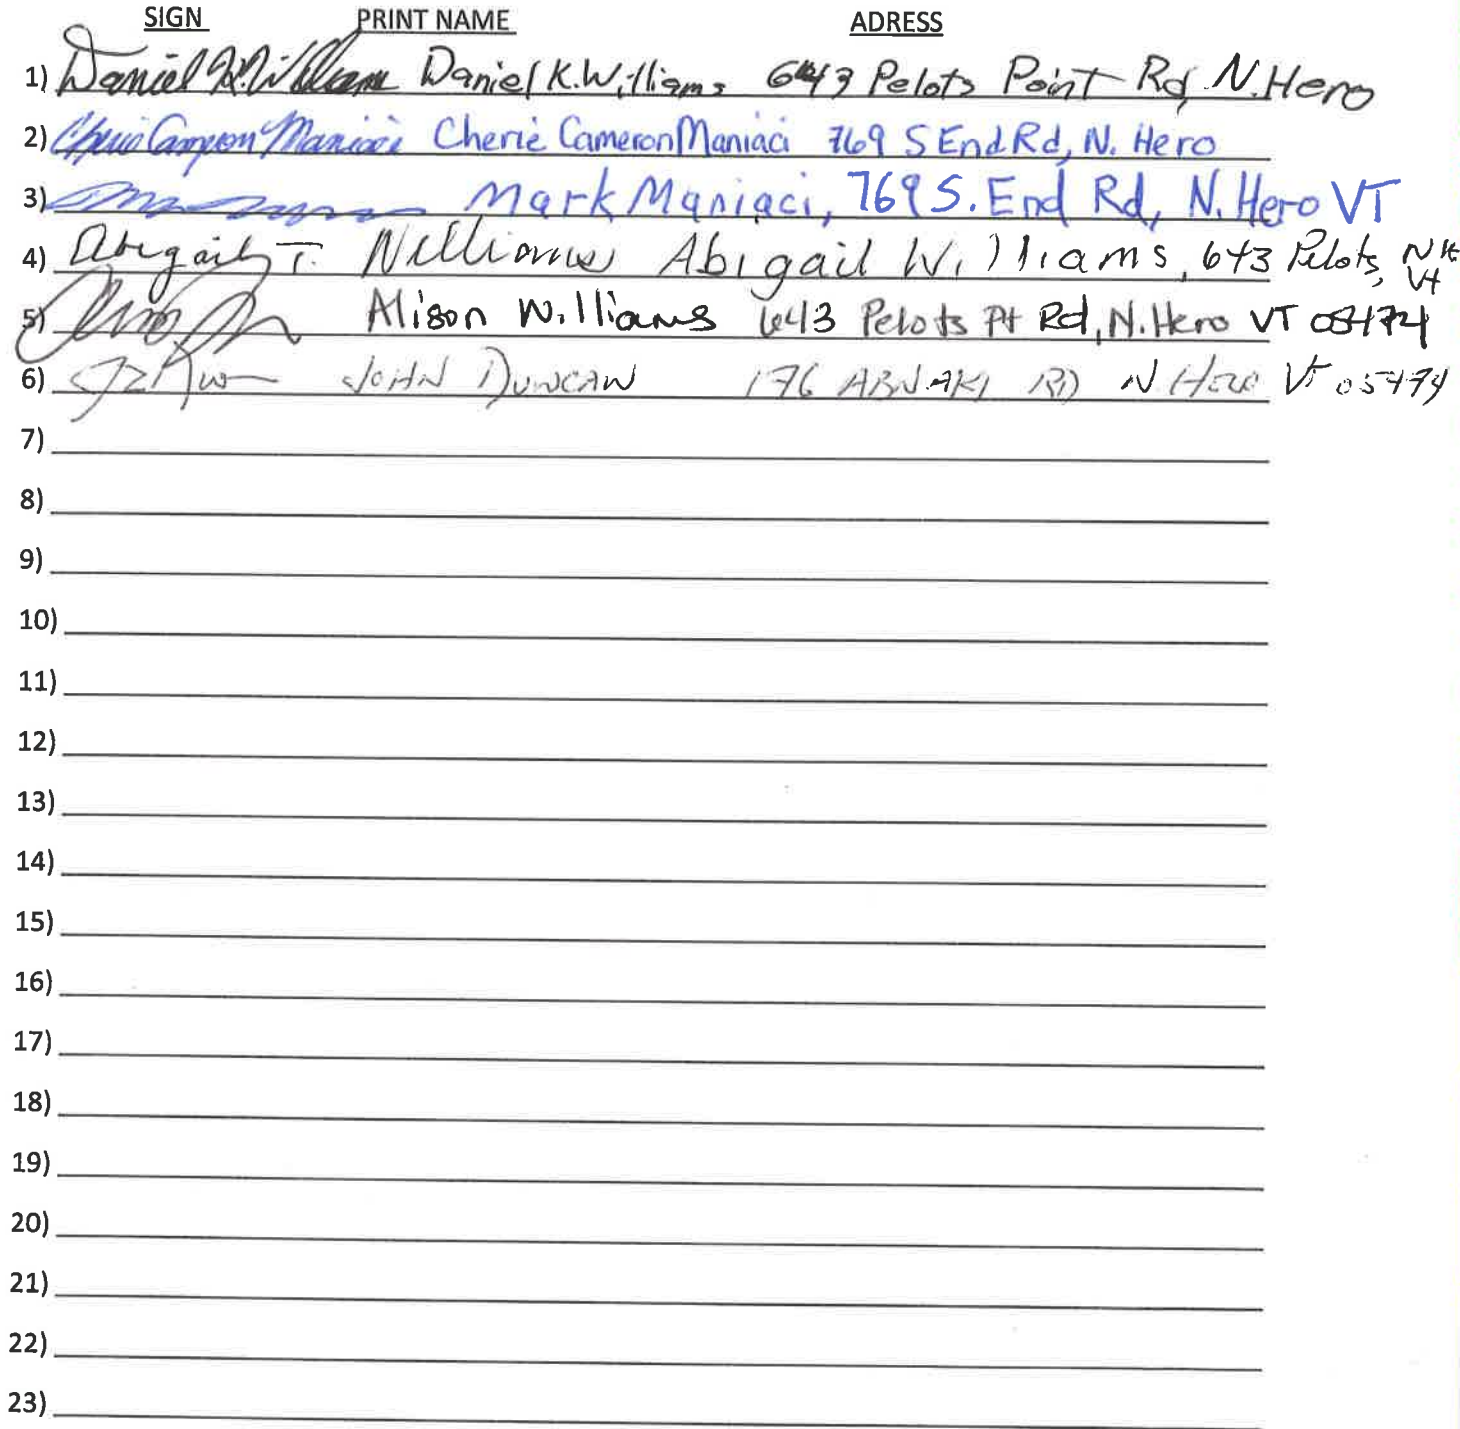 SIGN PRINT NAME ADRESS
1) Daniel K. Williams Daniel K. Williams 643 Pelots Point Rd, N. Hero
2) Cherie Cameron Maniaci Cherie Cameron Maniaci 769 S End Rd, N. Hero
3) Mark Maniaci, 769 S. End Rd, N. Hero VT
4) Abigail T. Williams Abigail Williams, 643 Pelots, NH VT
5) Alison Williams 643 Pelots Pt Rd, N. Hero VT 05474
6) JOHN DUNCAN 176 ABNAKI RD N Hero VT 05474
7)
8)
9)
10)
11)
12)
13)
14)
15)
16)
17)
18)
19)
20)
21)
22)
23)